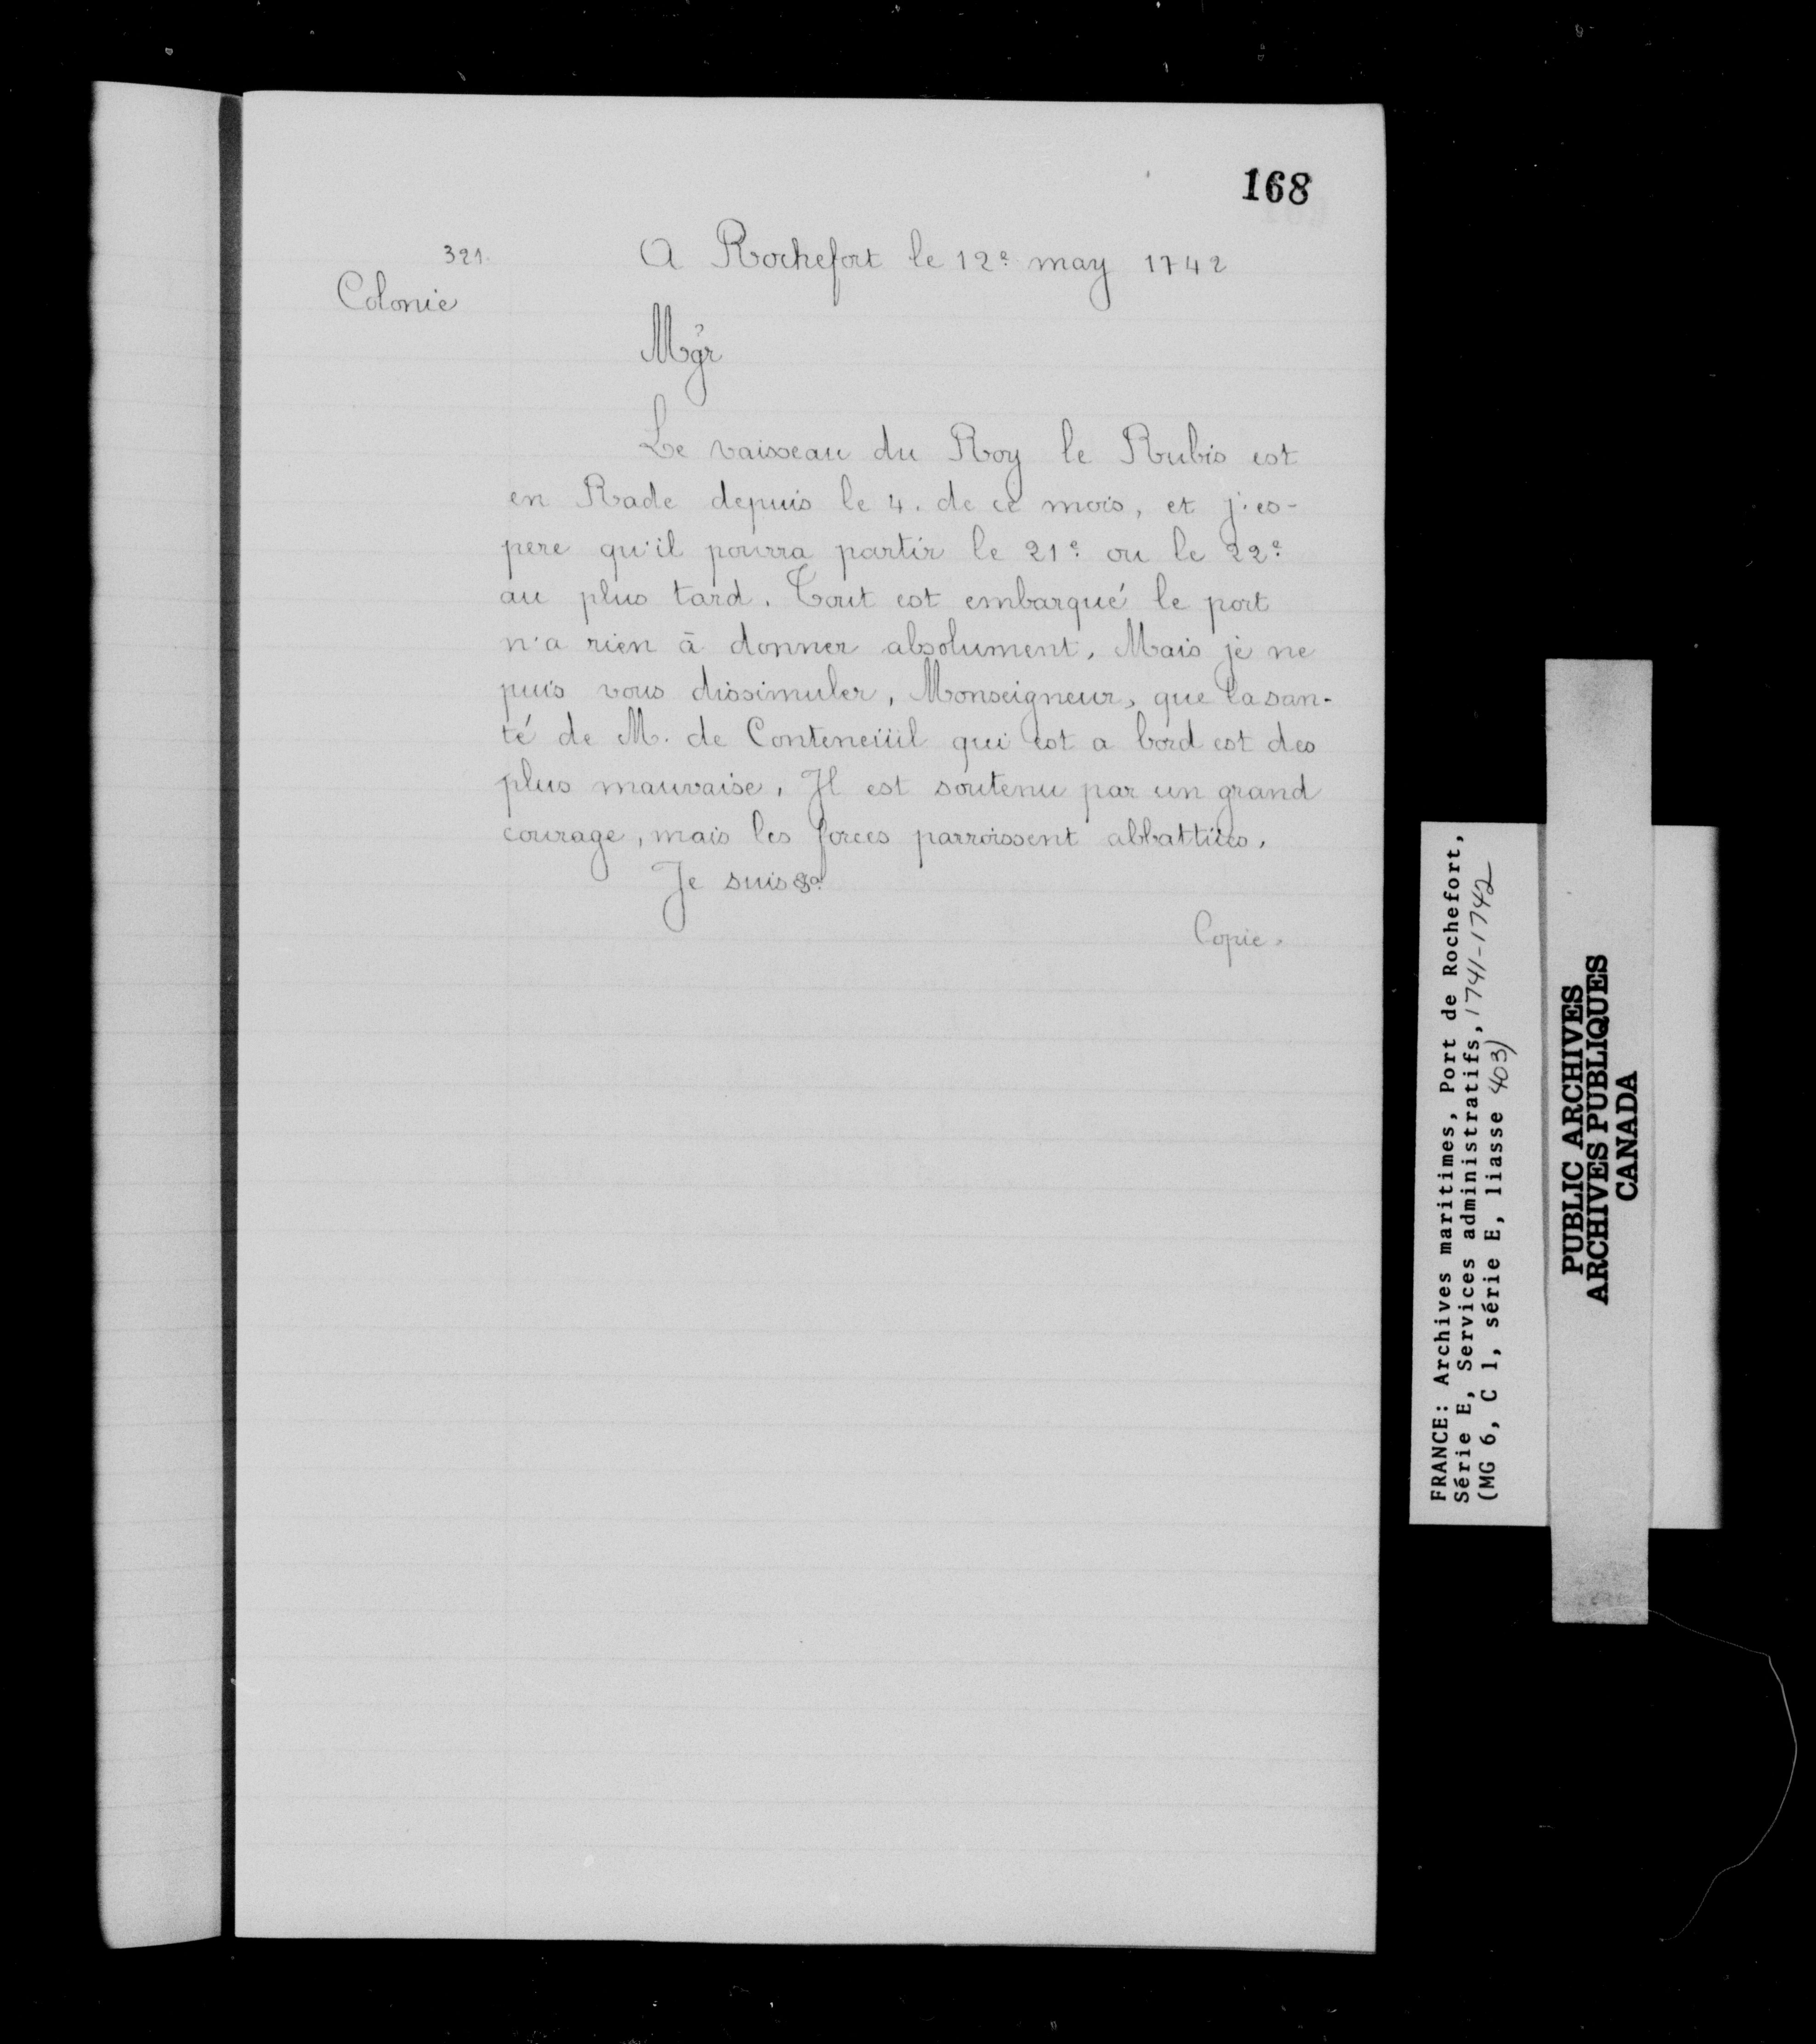 168
321.
A Rochefort le 12e may 1742
Colonie
Mgr
Le vaisseau du Roy le Rubis est
en Rade depuis le 4. de ce mois, et j'es-
pere qu'il pourra partir le 21e ou le 22e
au plus tard. Tout est embarqué le port
n'a rien à donner absolument. Mais je ne
puis vous dissimuler, Monseigneur, que la san-
té de M. de Conteneüil qui est a bord est des
plus mauvaise. Il est soutenu par un grand
courage, mais les forces parroissent abbattües.
Je suis &a
Copie.
FRANCE: Archives maritimes, Port de Rochefort,
Série E, Services administratifs, 1741-1742
(MG 6, C 1, série E, liasse 403)
PUBLIC ARCHIVES
ARCHIVES PUBLIQUES
CANADA